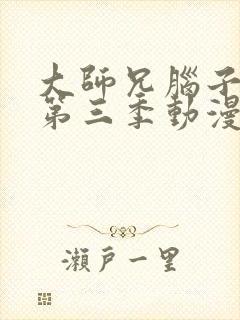 大師兄腦子
第三季動漫
瀬戶一里